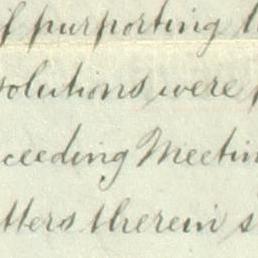 if purporting t
solutions were p
ceeding Meetin
tters therein s